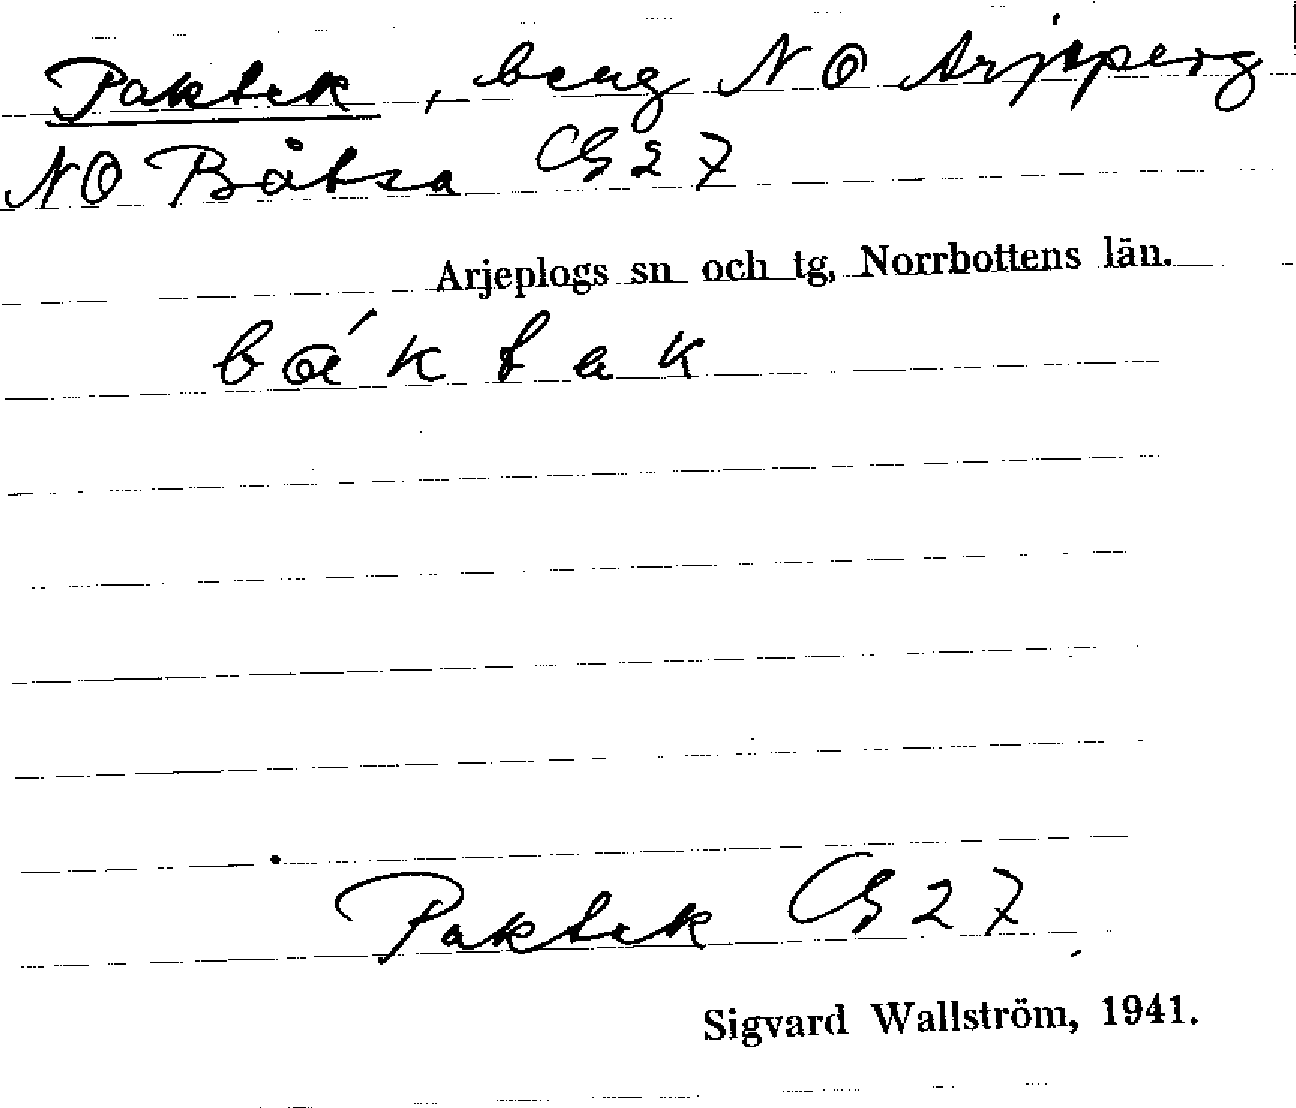 Paktek, berg NO Arjeperg
NO Båtsa G27
Arjeplogs sn och tg, Norrbottens län.
báktak
Paktek G27
Sigvard Wallström, 1941.